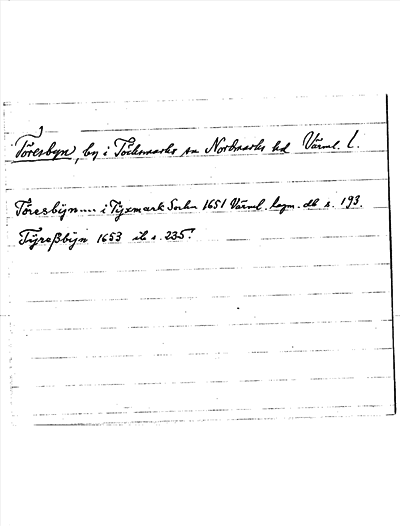 Töresbyn, by i Töcksmarks sn Nordmarks hd Värml. l.
Töresbÿn.... i Tÿxmark Sochn 1651 Värml. lagm. db s. 193.
Tÿreßbÿn 1653 ib s. 235.